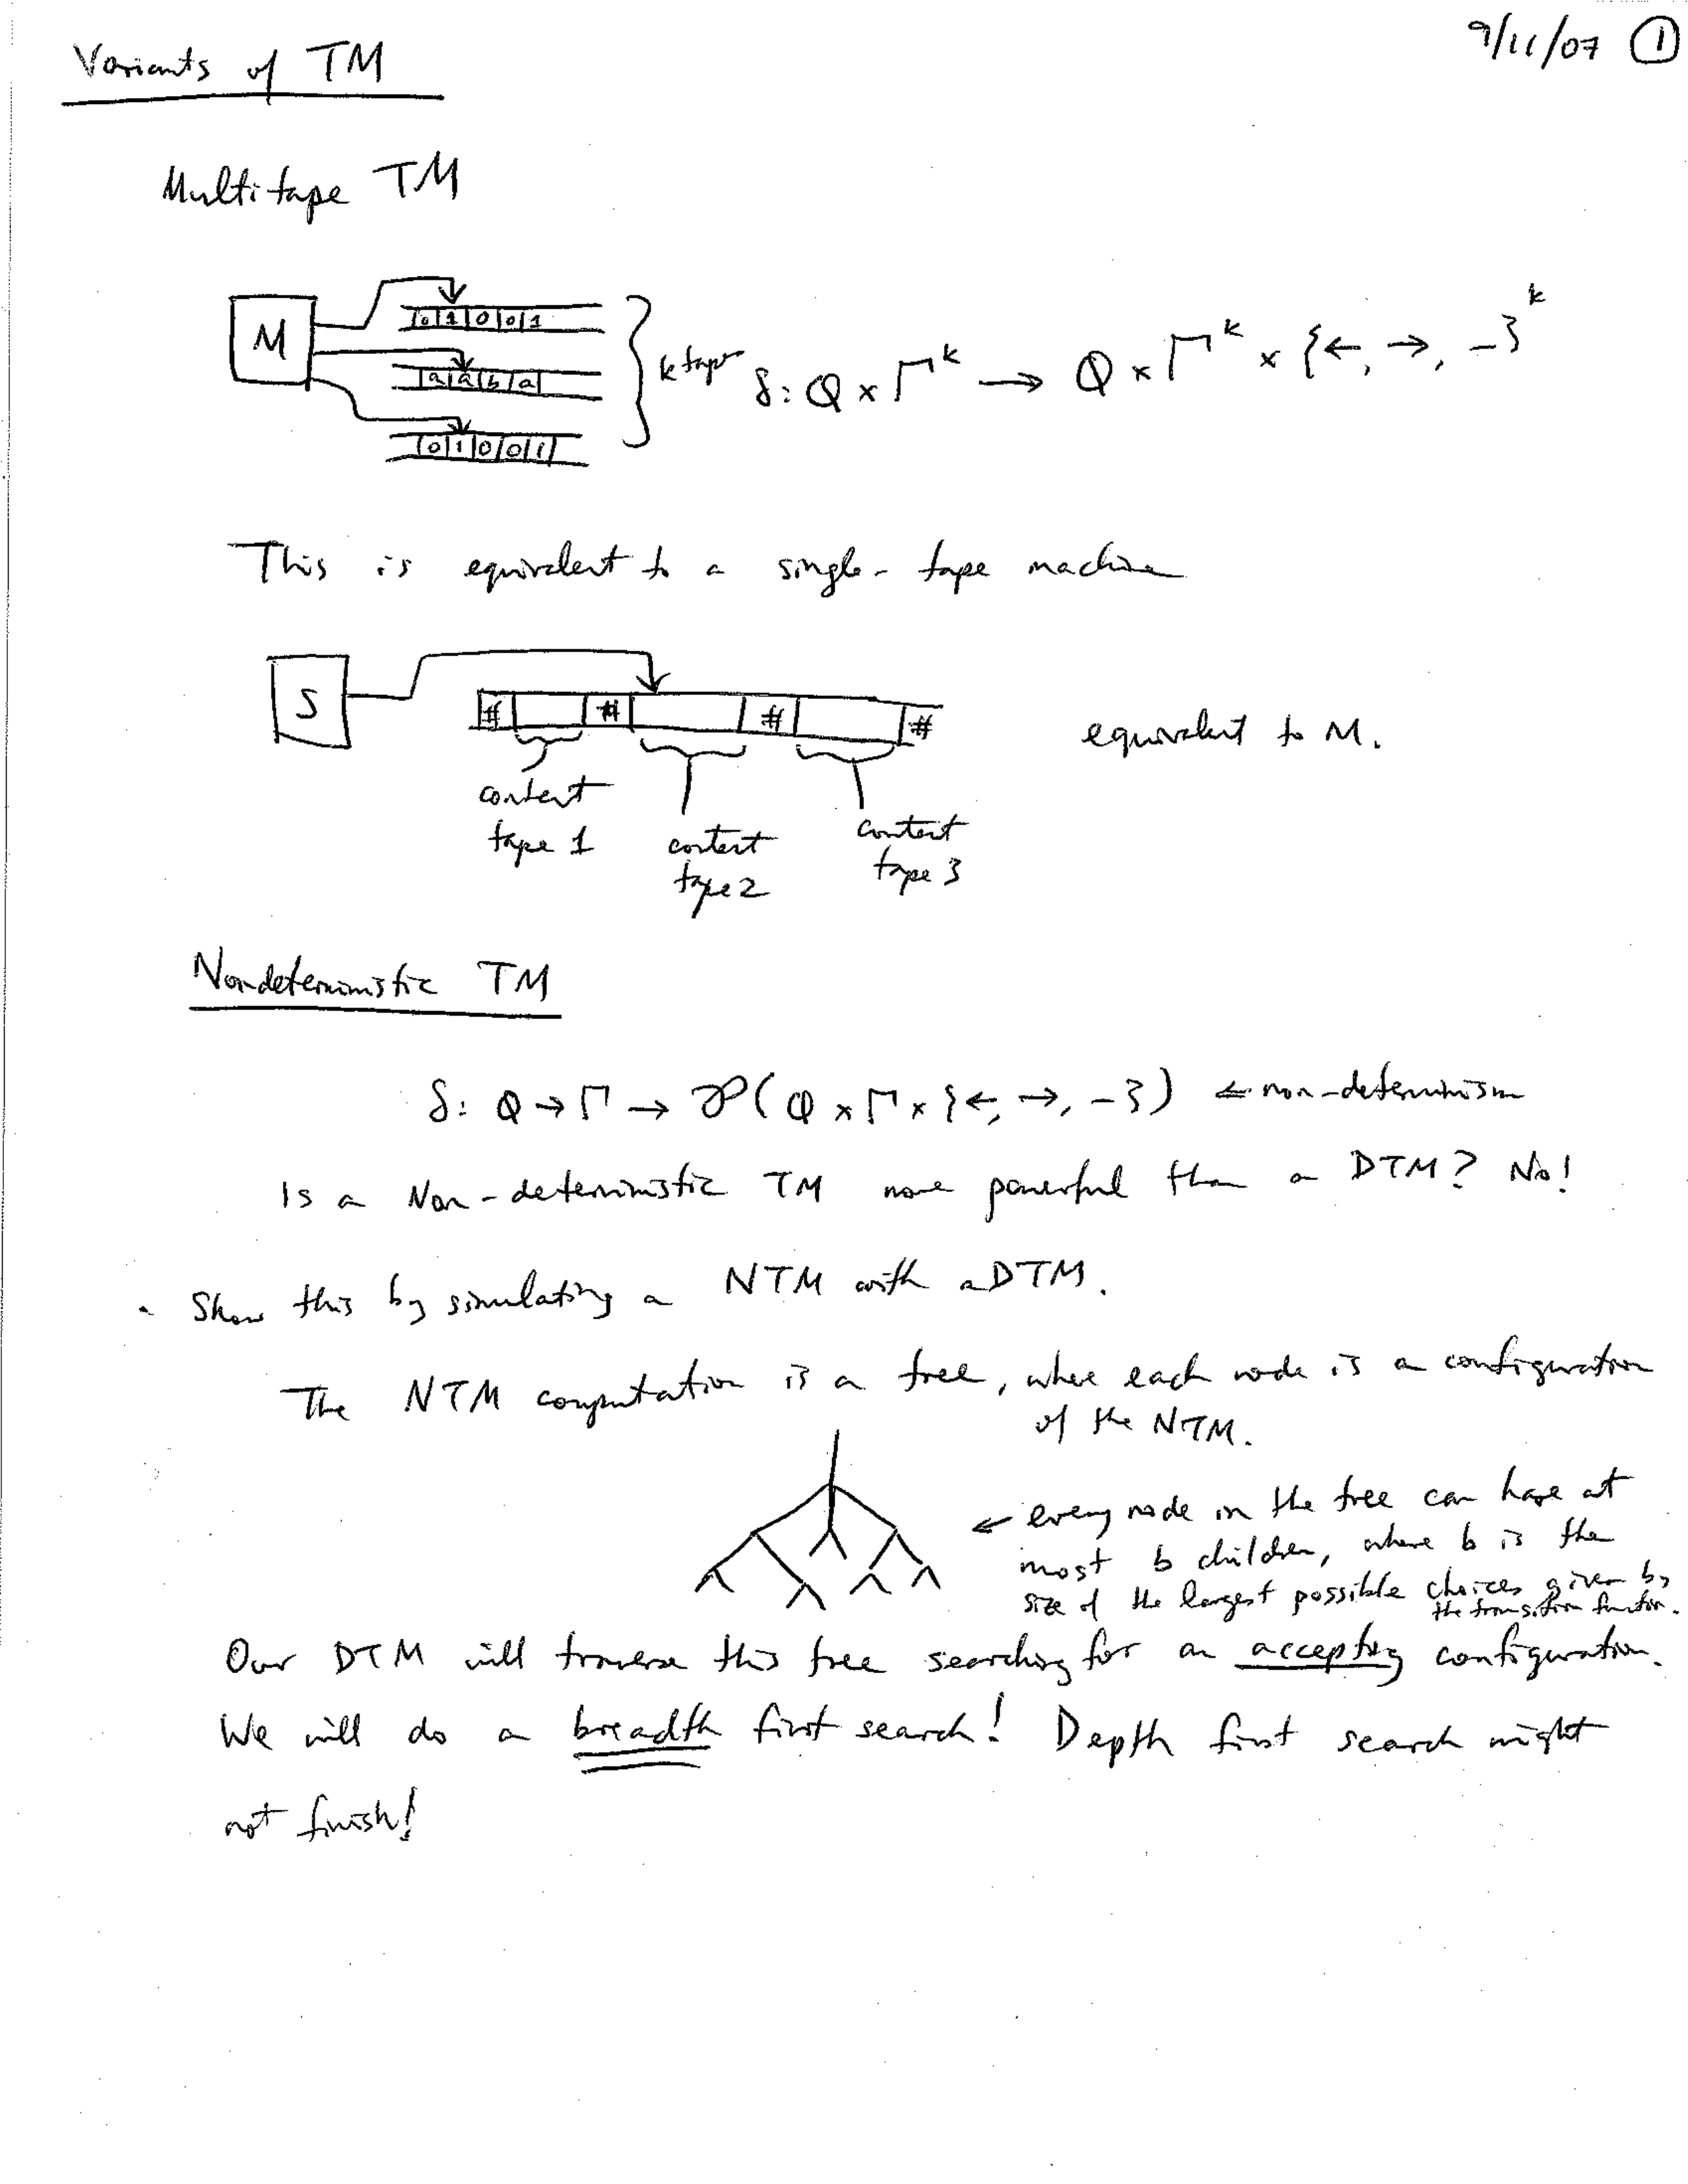 9/11/07 ①
Variants of TM
Multitape TM
M
0 1 0 0 1
a a b a
0 1 0 0 1
k tapes
δ: Q × Γ^k → Q × Γ^k × {←, →, –}^k
This is equivalent to a single-tape machine
S
# # # #
equivalent to M.
content tape 1
content tape 2
content tape 3
Nondeterministic TM
δ: Q → Γ → P(Q × Γ × {←, →, –}) ← non-determinism
Is a Non-deterministic TM more powerful than a DTM? No!
• Show this by simulating a NTM with a DTM.
The NTM computation is a tree, where each node is a configuration
of the NTM.
← every node in the tree can have at
most b children, where b is the
size of the largest possible choices given by
the transition function.
Our DTM will traverse this tree searching for an accepting configuration.
We will do a breadth first search! Depth first search might
not finish!